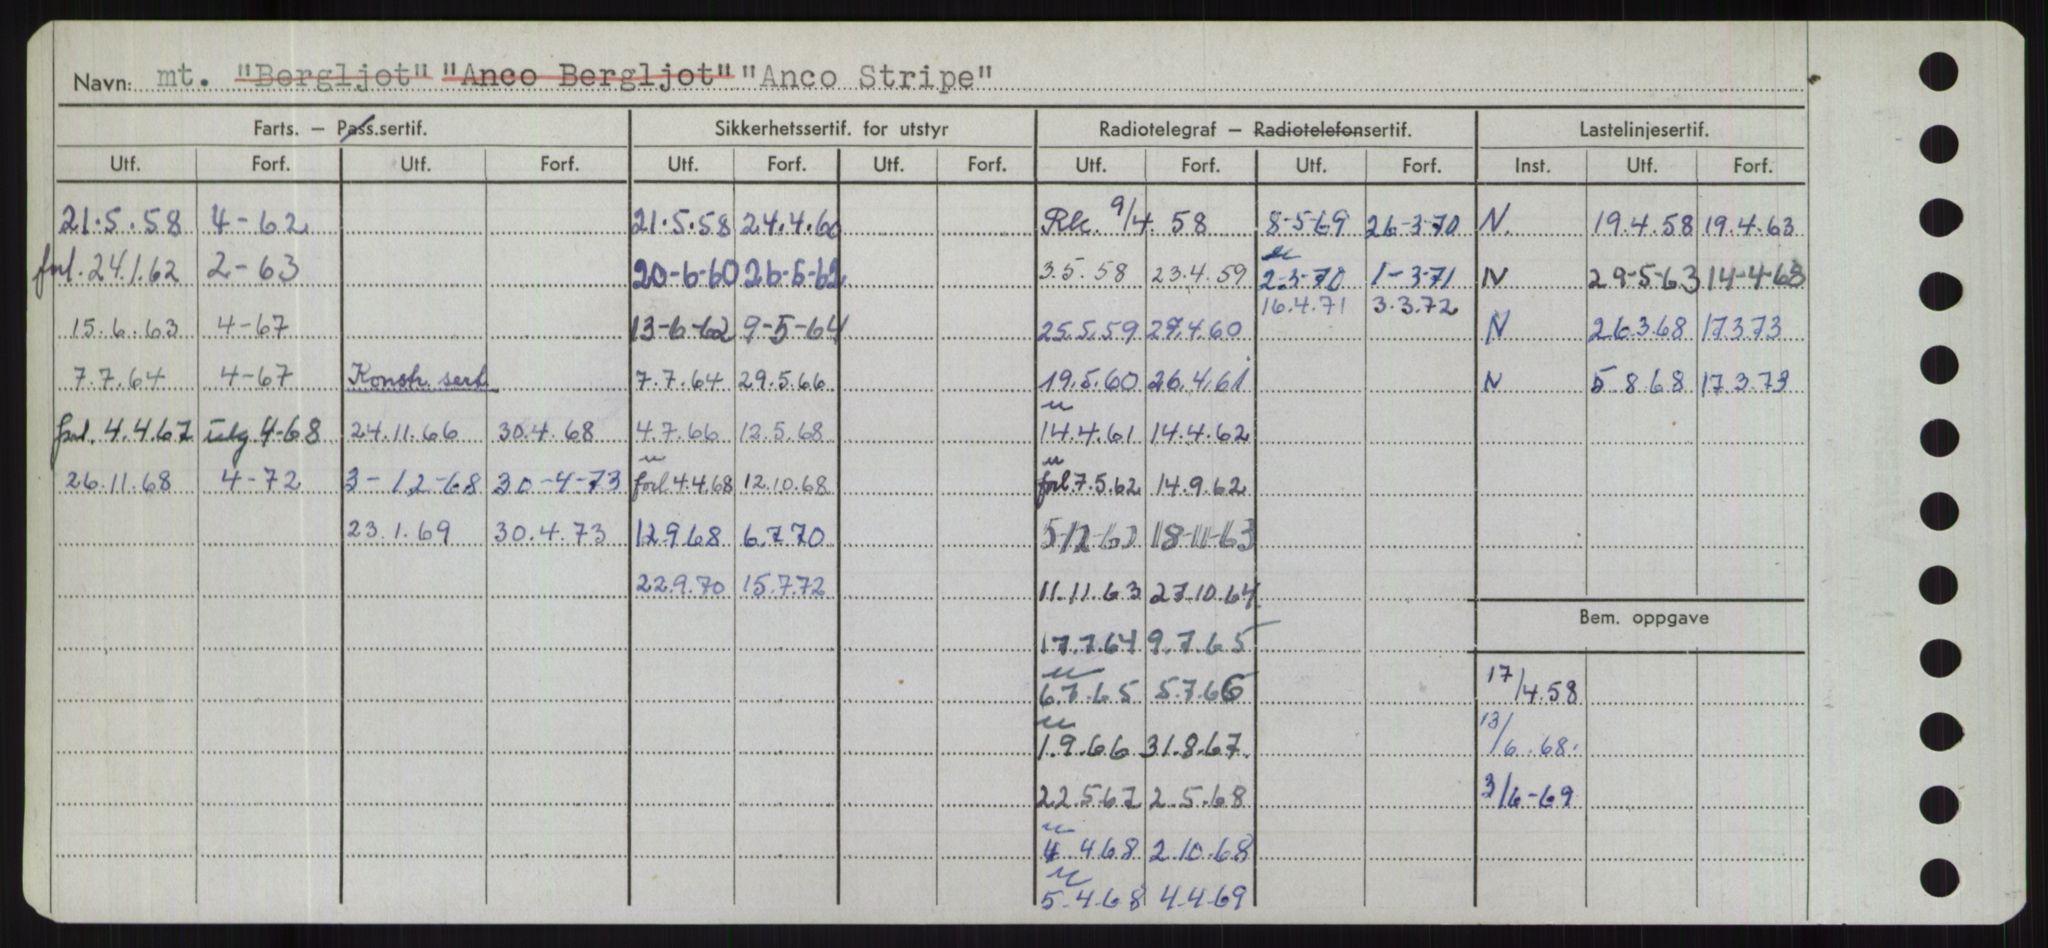 Navn: mt. "Bergljot" "Anco Bergljot" "Anco Stripe"
Farts. — Pass.sertif. Sikkerhetssertif. for utstyr Radiotelegraf — Radiotelefonsertif. Lastelinjesertif.
Utf. Forf. Utf. Forf. Utf. Forf. Utf. Forf. Utf. Forf. Utf. Forf. Inst. Utf. Forf.
21.5.58 4-62 21.5.58 24.4.60 Rk. 9/4.58 8-5-69 26-3-70 N. 19.4.58 19.4.63
forl. 24.1.62 2-63 20-6-60 26-5-62 3.5.58 23.4.59 2-3-70 1-3-71 N 29-5-63 14-4-68
16.4.71 3.3.72
15.6.63 4-67 13-6-62 9-5-64 25.5.59 29.4.60 N 26.3.68 17.3.73
7.7.64 4-67 Konstr. sert. 7.7.64 29.5.66 19.5.60 26.4.61 N 5.8.68 17.3.73
forl. 4.4.67 utg 4-68 24.11.66 30.4.68 4.7.66 12.5.68 14.4.61 14.4.62
26.11.68 4-72 3-12-68 30-4-73 forl 4.4.68 12.10.68 forl 7.5.62 14.9.62
23.1.69 30.4.73 12.9.68 6.7.70 5-12-62 18-11-63
22.9.70 15.7.72 11.11.63 27.10.64
Bem. oppgave
17.7.64 9.7.65
6.7.65 5.7.66 17/4.58
1.9.66 31.8.67 13/6.68.
22.5.67 2.5.68 3/6-69
4.4.68 2.10.68
5.4.68 4.4.69